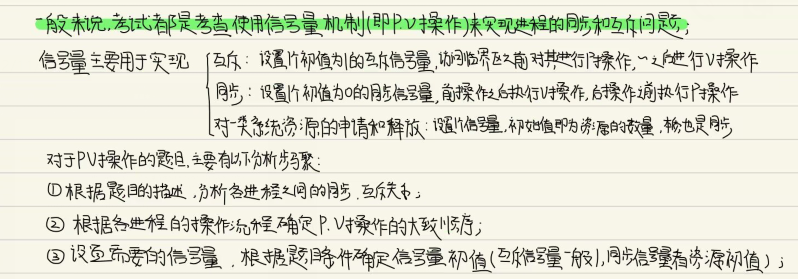 一般来说,考试都是考查使用信号量机制(即P.V操作)来实现进程的同步和互斥问题;
信号量主要用于实现
互斥: 设置1个初值为1的互斥信号量,访问临界区之前对其进行P操作,~之后进行V操作
同步: 设置1个初值为0的同步信号量,前操作之后执行V操作,后操作之前执行P操作
对一类系统资源的申请和释放: 设置1个信号量,初始值即为资源的数量,本质也是同步
对于PV操作的题目,主要有以下分析步骤:
① 根据题目的描述,分析各进程之间的同步.互斥关系;
② 根据各进程的操作流程确定P.V操作的大致顺序;
③ 设置需要的信号量,根据题目条件确定信号量初值(互斥信号量一般1,同步信号量看资源初值);